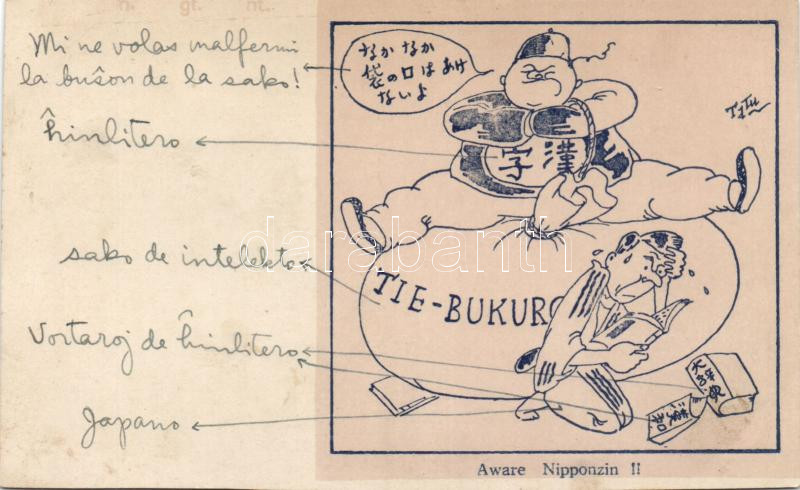 Mi ne volas malfermi
la buŝon de la sako!
ĥinlitero
sako de intelekto
Vortaroj de ĥinlitero
Japano
なかなか
袋の口はあけ
ないよ
字漢
TIE-BUKURO
Aware Nipponzin !!
darabanth